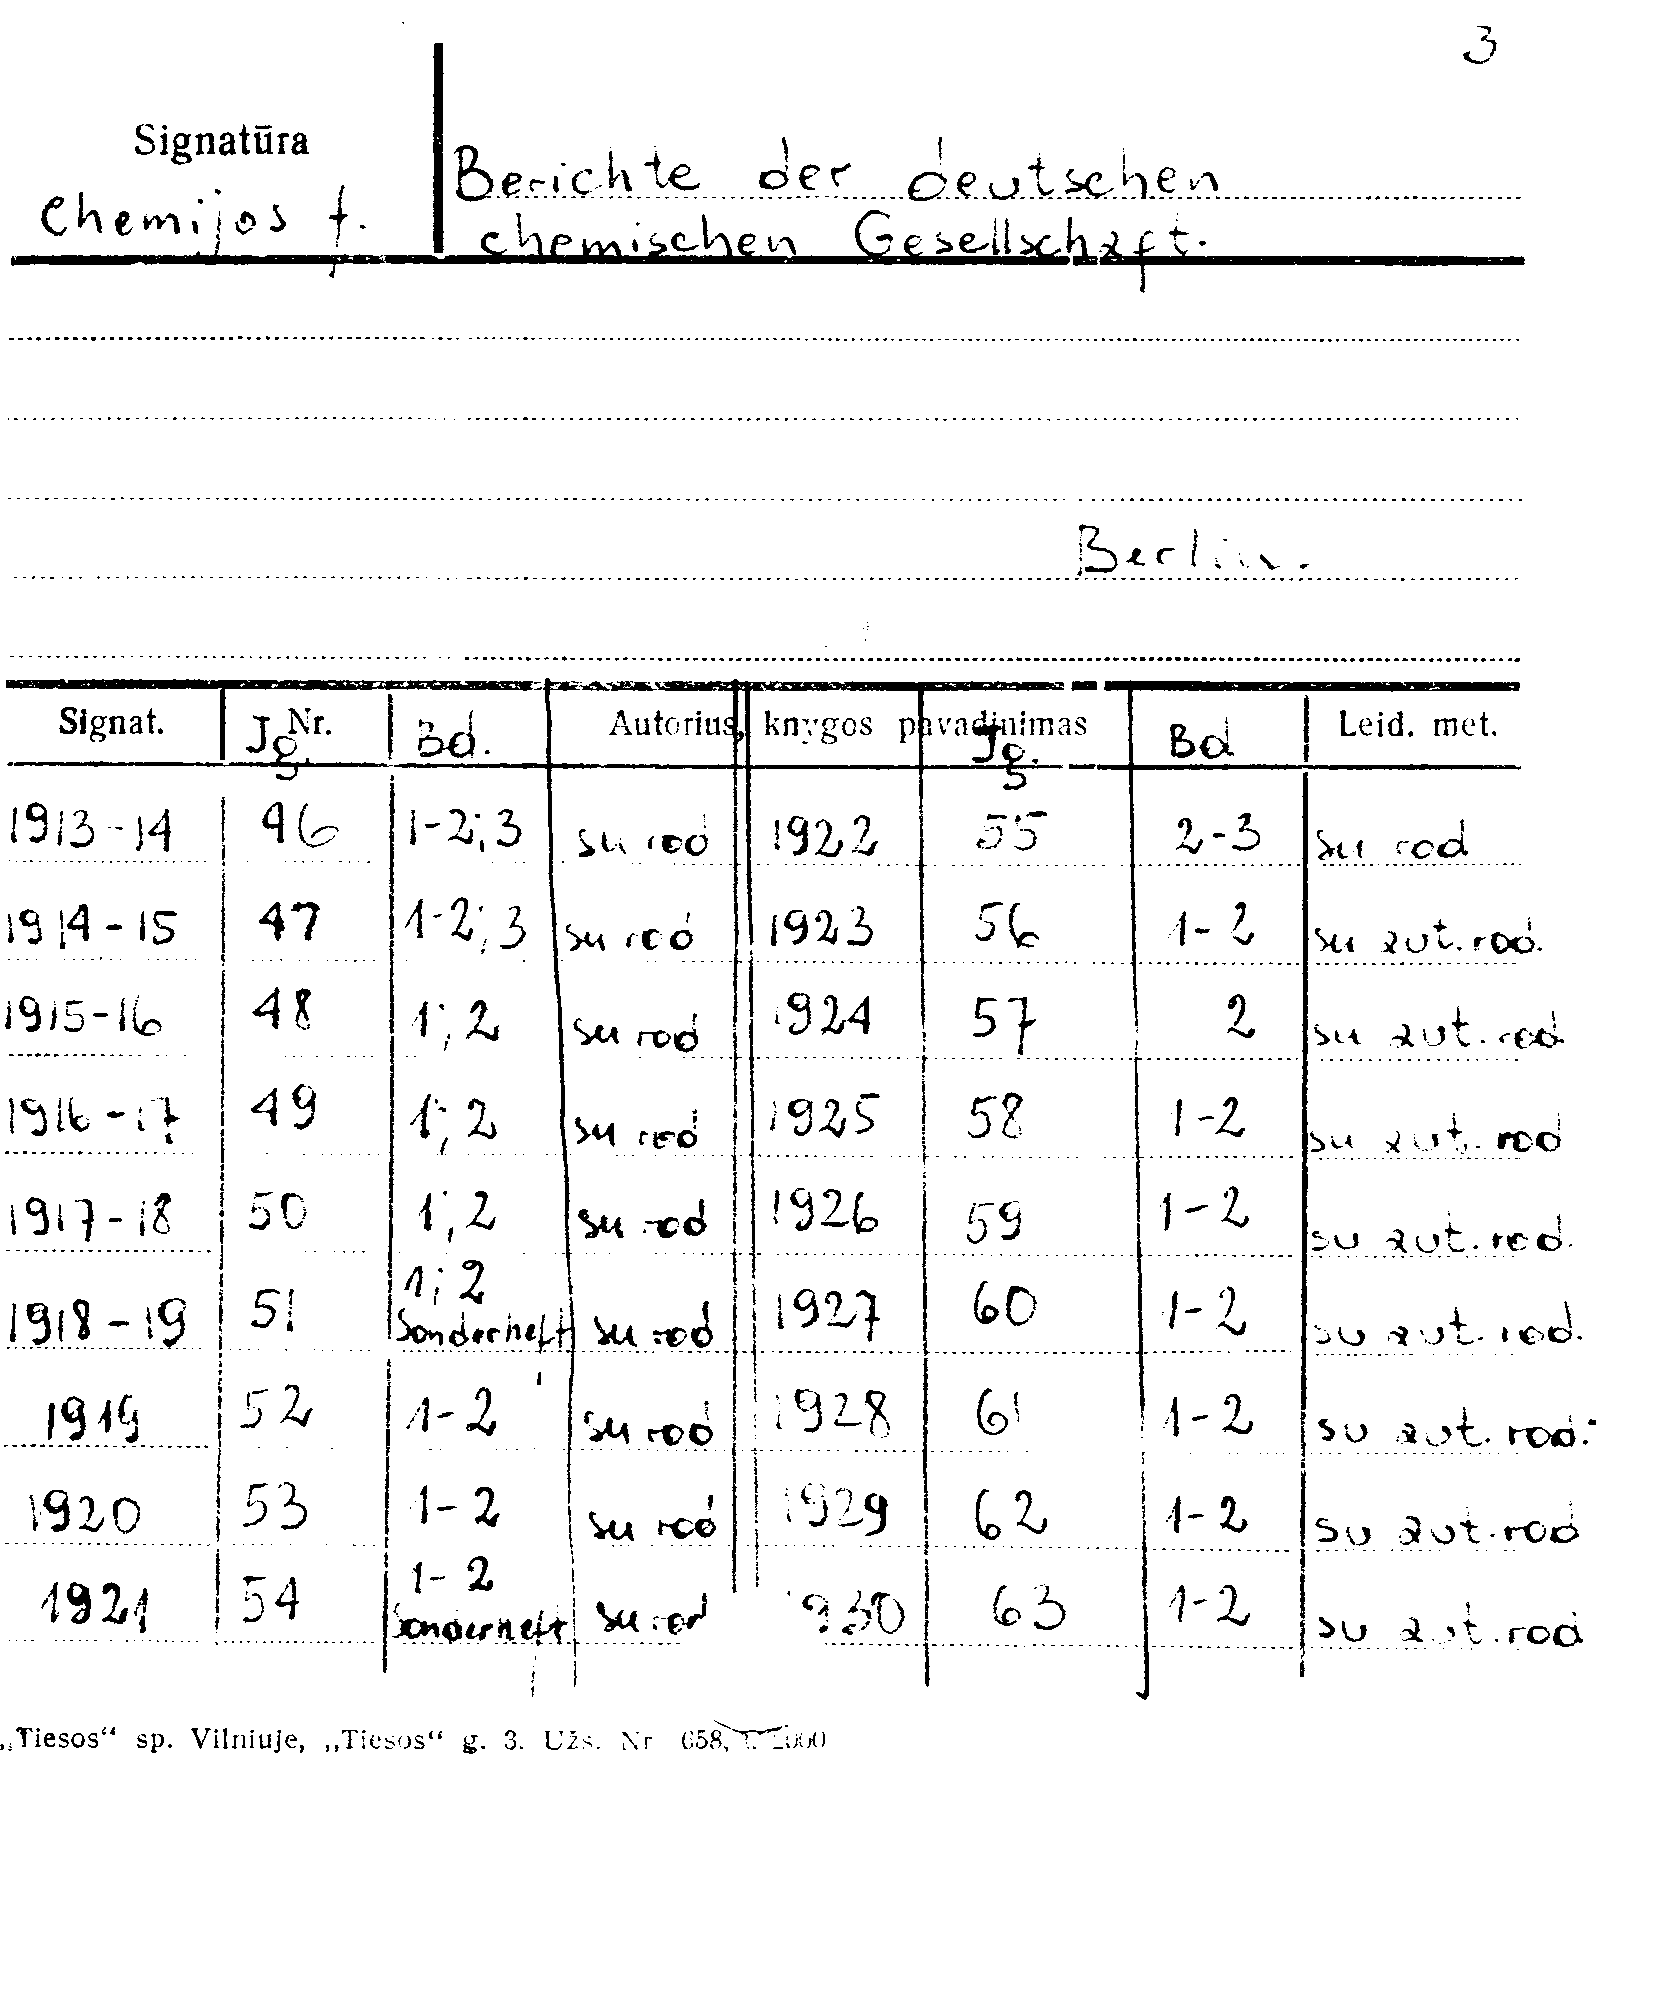 3
Signatūra
Chemijos f.
Berichte der deutschen
chemischen Gesellschaft.
Berlin.
Signat. Jg. Nr. Bd. Autorius, knygos pavadinimas Jg. Bd Leid. met.
1913-14 46 1-2; 3 su rod 1922 55 2-3 su rod
1914-15 47 1-2; 3 su rod 1923 56 1-2 su aut. rod.
1915-16 48 1; 2 su rod 1924 57 2 su aut. rod.
1916-17 49 1; 2 su rod 1925 58 1-2 su aut. rod
1917-18 50 1; 2 su rod 1926 59 1-2 su aut. rod.
1918-19 51 1; 2 Sonderheft su rod 1927 60 1-2 su aut. rod.
1919 52 1-2 su rod 1928 61 1-2 su aut. rod.
1920 53 1-2 su rod 1929 62 1-2 su aut. rod
1921 54 1-2 Sonderheft su rod 1930 63 1-2 su aut. rod
„Tiesos“ sp. Vilniuje, „Tiesos“ g. 3. Užs. Nr 658,